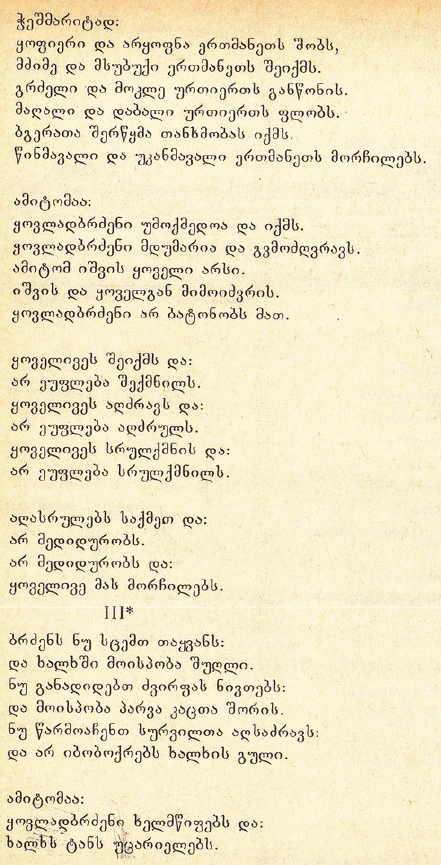 ჭეშმარიტად:
ყოფიერი და არყოფნა ერთმანეთს შობს,
მძიმე და მსუბუქი ერთმანეთს შეიქმს.
გრძელი და მოკლე ურთიერთს განწონის.
მაღალი და დაბალი ურთიერთს ფლობს.
ბგერათა შერწყმა თანხმობას იქმს.
წინმავალი და უკანმავალი ერთმანეთს მორჩილებს.

ამიტომაა:
ყოვლადბრძენი უმოქმედოა და იქმს.
ყოვლადბრძენი მდუმარია და გვმოძღვრავს.
ამიტომ იშვის ყოველი არსი.
იშვის და ყოველგან მიმოიძვრის.
ყოვლადბრძენი არ ბატონობს მათ.

ყოველივეს შეიქმს და:
არ ეუფლება შექმნილს.
ყოველივეს აღძრავს და:
არ ეუფლება აღძრულს.
ყოველივეს სრულქმნის და:
არ ეუფლება სრულქმნილს.

აღასრულებს საქმეთ და:
არ მედიდურობს.
არ მედიდურობს და:
ყოველივე მას მორჩილებს.
III*
ბრძენს ნუ სცემთ თაყვანს:
და ხალხში მოისპობა შუღლი.
ნუ განადიდებთ ძვირფას ნივთებს:
და მოისპობა პარვა კაცთა შორის.
ნუ წარმოაჩენთ სურვილთა აღსაძრავს:
და არ იბობოქრებს ხალხის გული.

ამიტომაა:
ყოვლადბრძენი ხელმწიფებს და:
ხალხს ტანს უცარიელებს.